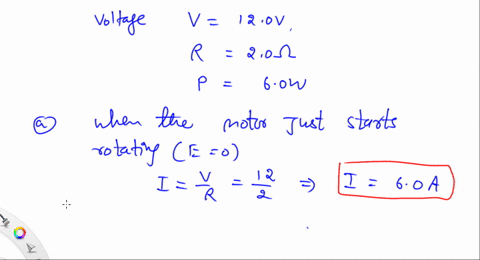 Voltage V = 12.0V,
R = 2.0Ω
P = 6.0W
(a) when the motor Just starts
rotating (E = 0)
I = V/R = 12/2 ⇒ I = 6.0 A